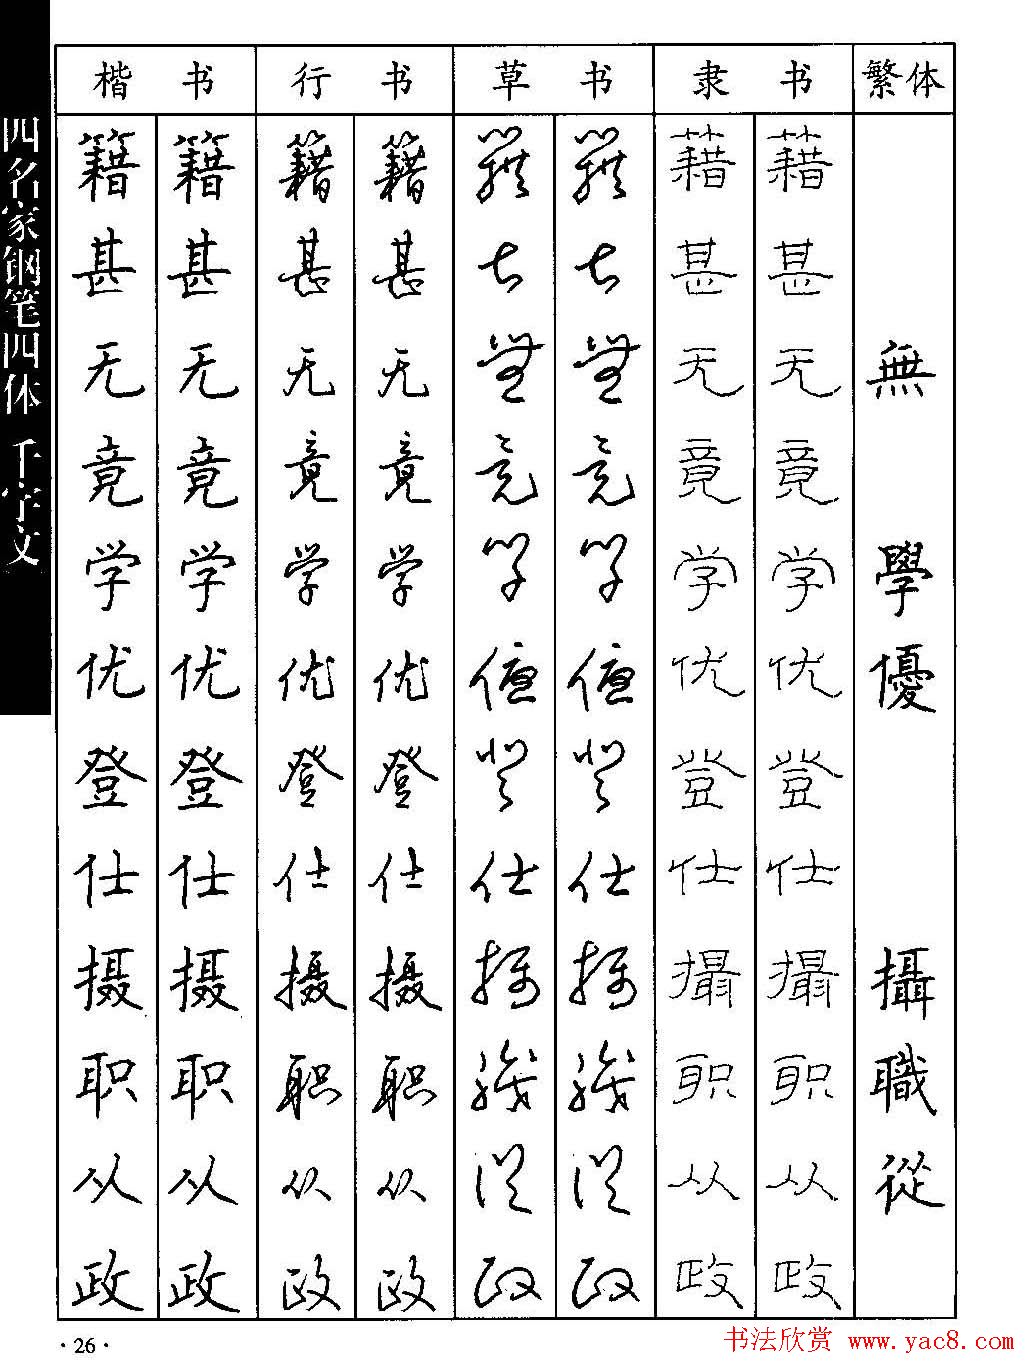 四名家钢笔四体 千字文
楷书 行书 草书 隶书 繁体
籍 籍 籍 籍 籍 籍 藉 藉
甚 甚 甚 甚 甚 甚 甚 甚
无 无 无 无 無 無 无 无 無
竟 竟 竟 竟 竟 竟 竟 竟
学 学 学 学 学 学 学 学 學
优 优 优 优 優 優 优 优 優
登 登 登 登 登 登 登 登
仕 仕 仕 仕 仕 仕 仕 仕
摄 摄 摄 摄 攝 攝 攝 攝 攝
职 职 职 职 職 職 职 职 職
从 从 从 从 從 從 从 从 從
政 政 政 政 政 政 政 政
·26·
书法欣赏 www.yac8.com